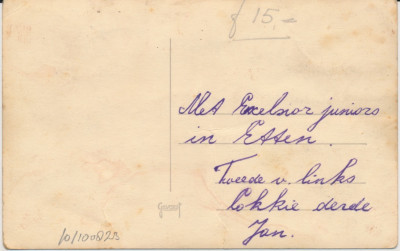 f 15,-
Met Excelsior juniors
in Etten.
Tweede v. links
Lokkie derde
Jan.
10/10082B